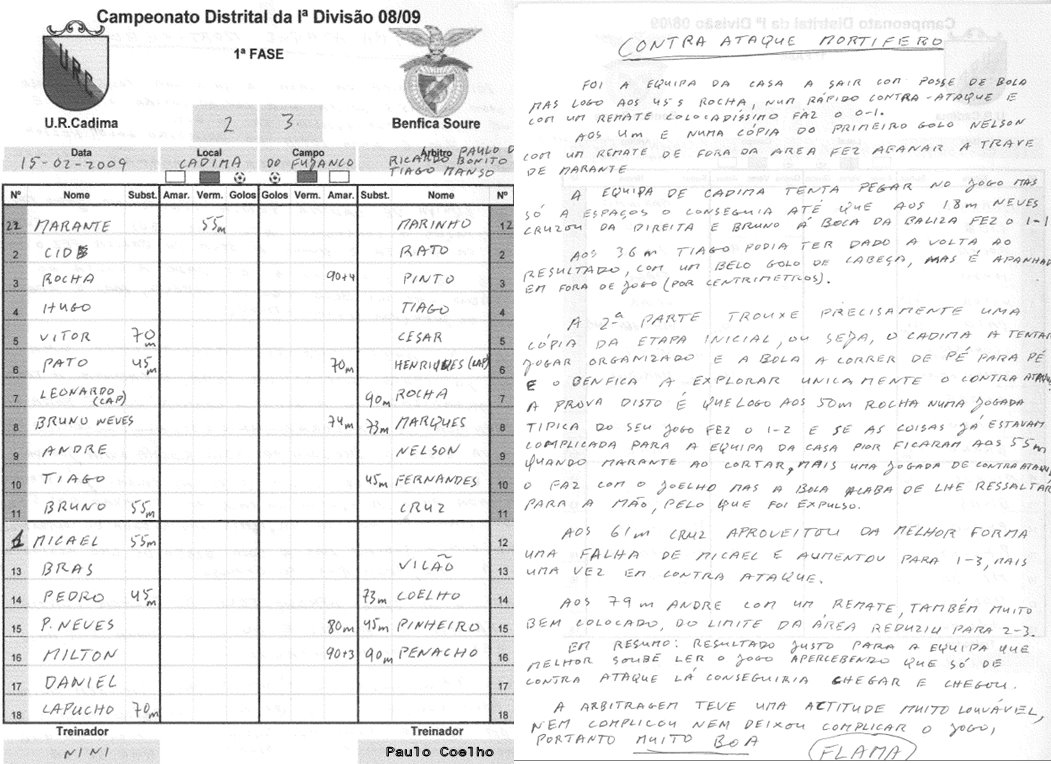 Campeonato Distrital da Iª Divisão 08/09
1ª FASE
URC
U.R.Cadima
2 3
Benfica Soure
Data Local Campo Árbitro
15-02-2009 CADIMA DO FUJANCO
RICARDO BONITO
TIAGO MANSO
Nº Nome Subst. Amar. Verm. Golos Golos Verm. Amar. Subst. Nome Nº
MARANTE 55m MARINHO 12
2 CID RATO 2
3 ROCHA 90+4 PINTO 3
4 HUGO TIAGO 4
5 VITOR 70m CESAR 5
6 PATO 45m 70m HENRIQUES (CAP) 6
7 LEONARDO (CAP) 90m ROCHA 7
8 BRUNO NEVES 74m 73m MARQUES 8
9 ANDRE NELSON 9
10 TIAGO 45m FERNANDES 10
11 BRUNO 55m CRUZ 11
1 MICAEL 55m 12
13 BRAS VILÃO 13
14 PEDRO 45m 73m COELHO 14
15 P. NEVES 80m 45m PINHEIRO 15
16 MILTON 90+3 90m PENACHO 16
17 DANIEL 17
18 LAPUCHO 70m 18
Treinador Treinador
NINI Paulo Coelho
CONTRA ATAQUE MORTIFERO
FOI A EQUIPA DA CASA A SAIR COM POSSE DE BOLA
MAS LOGO AOS 45s ROCHA, NUM RÁPIDO CONTRA-ATAQUE E
COM UM REMATE COLOCADISSIMO FAZ O 0-1.
AOS 4m E NUMA CÓPIA DO PRIMEIRO GOLO NELSON
COM UM REMATE DE FORA DA AREA FEZ ABANAR A TRAVE
DE MARANTE
A EQUIPA DE CADIMA TENTA PEGAR NO JOGO MAS
SÓ A ESPAÇOS O CONSEGUIA ATÉ QUE AOS 18m NEVES
CRUZOU DA DIREITA E BRUNO Á BOCA DA BALIZA FEZ O 1-1
AOS 36m TIAGO PODIA TER DADO A VOLTA AO
RESULTADO, COM UM BELO GOLO DE CABEÇA, MAS É APANHADO
EM FORA DE JOGO (POR CENTRIMETROS).
A 2ª PARTE TROUXE PRECISAMENTE UMA
CÓPIA DA ETAPA INICIAL, OU SEJA, O CADIMA A TENTAR
JOGAR ORGANIZADO E A BOLA A CORRER DE PÉ PARA PÉ
E O BENFICA A EXPLORAR UNICAMENTE O CONTRA ATAQUE
A PROVA DISTO É QUE LOGO AOS 50m ROCHA NUMA JOGADA
TIPICA DO SEU JOGO FEZ O 1-2 E SE AS COISAS JÁ ESTAVAM
COMPLICADA PARA A EQUIPA DA CASA PIOR FICARAM AOS 55m
QUANDO MARANTE AO CORTAR, MAIS UMA JOGADA DE CONTRA ATAQUE
O FAZ COM O JOELHO MAS A BOLA ACABA DE LHE RESSALTAR
PARA A MÃO, PELO QUE FOI EXPULSO.
AOS 61m CRUZ APROVEITOU DA MELHOR FORMA
UMA FALHA DE MICAEL E AUMENTOU PARA 1-3, MAIS
UMA VEZ EM CONTRA ATAQUE.
AOS 79m ANDRE COM UM REMATE, TAMBÉM MUITO
BEM COLOCADO, DO LIMITE DA ÁREA REDUZIU PARA 2-3.
EM RESUMO: RESULTADO JUSTO PARA A EQUIPA QUE
MELHOR SOUBE LER O JOGO APERCEBENDO QUE SÓ DE
CONTRA ATAQUE LÁ CONSEGUIRIA CHEGAR E CHEGOU.
A ARBITRAGEM TEVE UMA ACTITUDE MUITO LOUVÁVEL,
NEM COMPLICOU NEM DEIXOU COMPLICAR O JOGO,
PORTANTO MUITO BOA
FLAMA